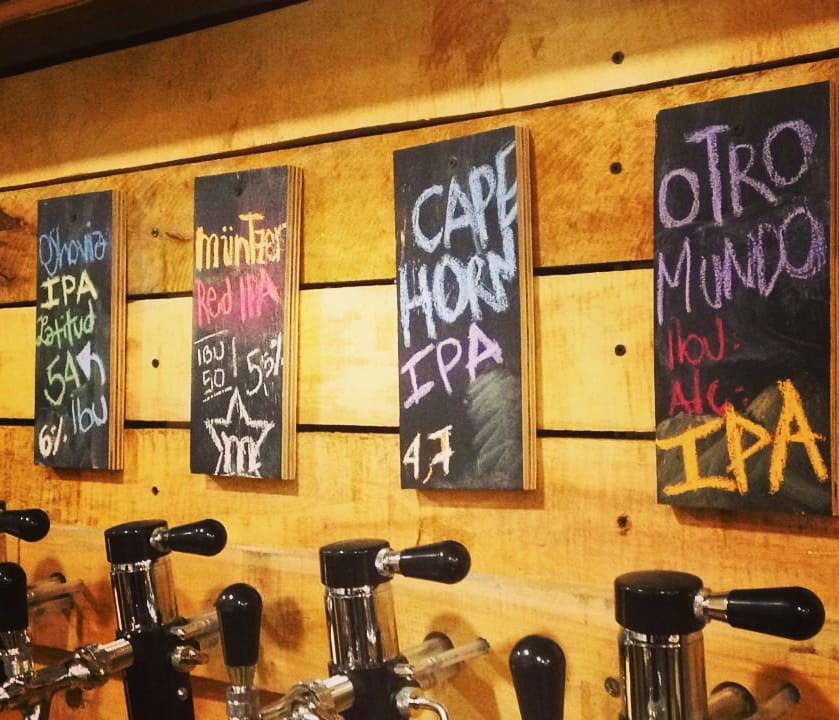 IPA
Latitud
54
Ibu
6%
müntzer
Red IPA
IBU
50
5,5%
m
CAPE
HORN
IPA
4,7
OTRO
MUNDO
Ibu:
Alc:
IPA